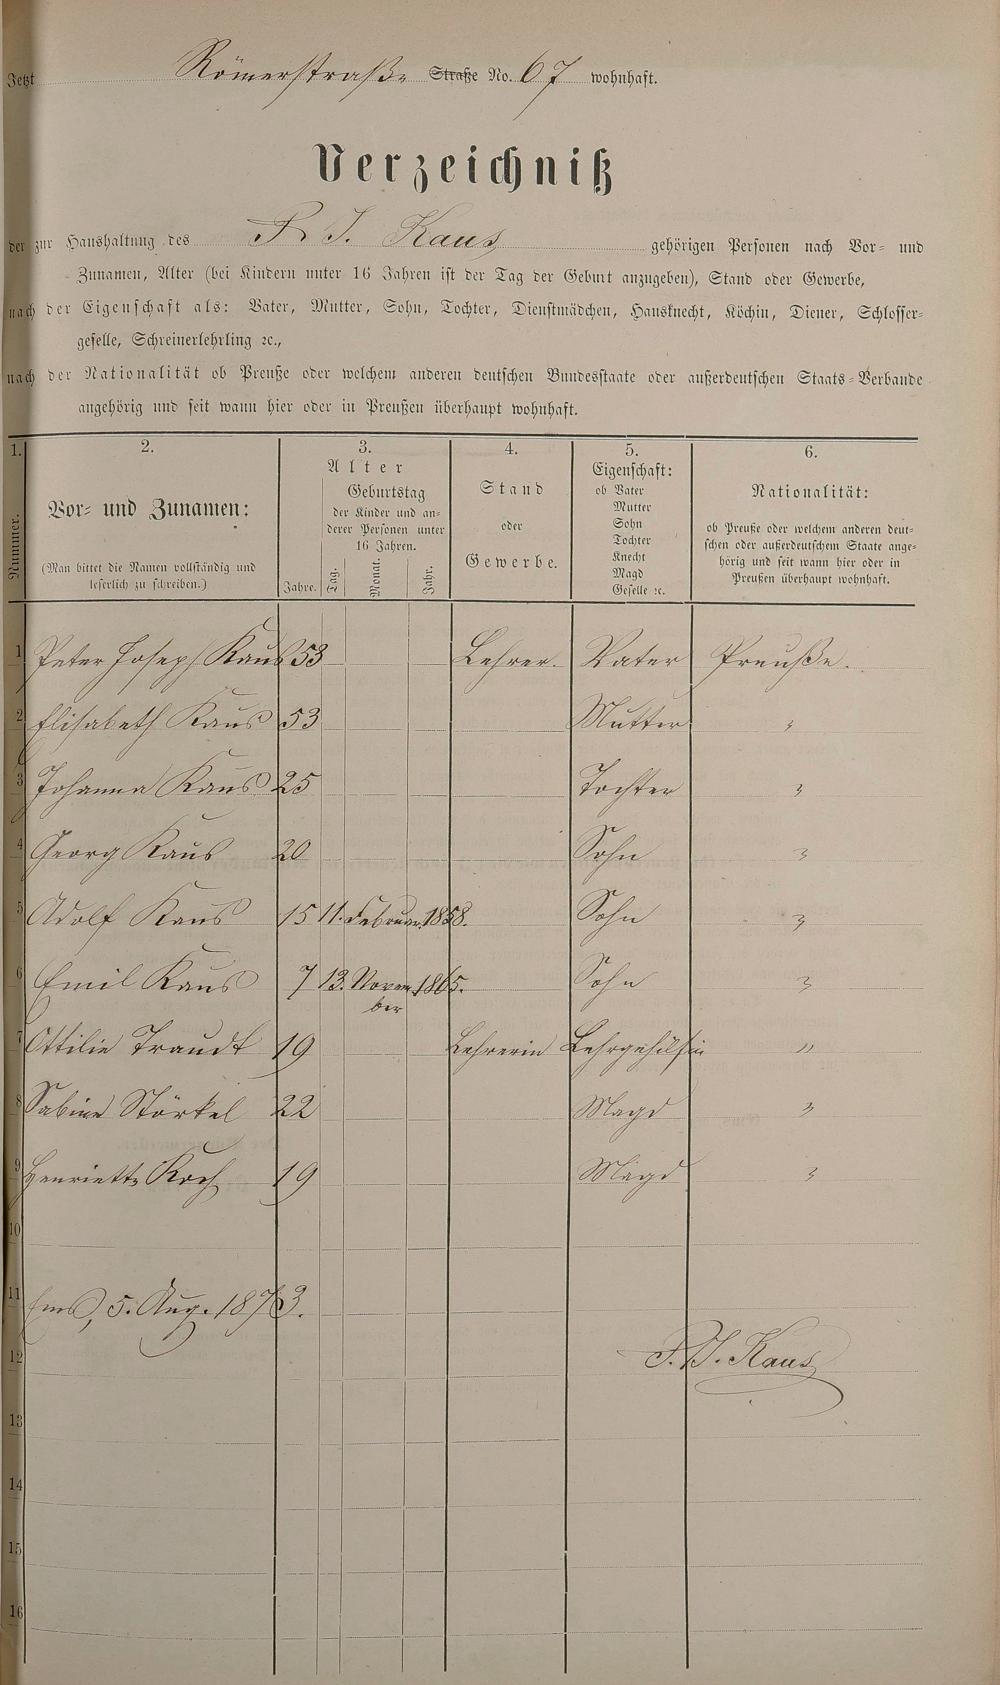 Jetzt Römerstraße Straße No. 67 wohnhaft.
Verzeichniß
der zur Haushaltung des P. J. Kaus gehörigen Personen nach Vor- und
Zunamen, Alter (bei Kindern unter 16 Jahren ist der Tag der Geburt anzugeben), Stand oder Gewerbe,
nach der Eigenschaft als: Vater, Mutter, Sohn, Tochter, Dienstmädchen, Hausknecht, Köchin, Diener, Schlosser-
geselle, Schreinerlehrling ꝛc.,
nach der Nationalität ob Preuße oder welchem anderen deutschen Bundesstaate oder außerdeutschen Staats-Verbande
angehörig und seit wann hier oder in Preußen überhaupt wohnhaft.
1. 2. 3. 4. 5. 6.
Nummer.
Vor- und Zunamen:
(Man bittet die Namen vollständig und
leserlich zu schreiben.)
Alter
Jahre.
Geburtstag
der Kinder und an-
derer Personen unter
16 Jahren.
Tag. Monat. Jahr.
Stand
oder
Gewerbe.
Eigenschaft:
ob Vater
Mutter
Sohn
Tochter
Knecht
Magd
Geselle ꝛc.
Nationalität:
ob Preuße oder welchem anderen deut-
schen oder außerdeutschem Staate ange-
hörig und seit wann hier oder in
Preußen überhaupt wohnhaft.
1 Peter Joseph Kaus 53 Lehrer. Vater Preuße.
2 Elisabeth Kaus 53 Mutter "
3 Johanna Kaus 25 Tochter "
4 Georg Kaus 20 Sohn "
5 Adolf Kaus 15 11. Februar. 1858. Sohn "
6 Emil Kaus 7 13. Novem- 1865. Sohn "
ber
7 Ottilie Traudt 19 Lehrerin Lehrgehilfin "
8 Sabine Störkel 22 Magd "
9 Henriette Koch 19 Magd "
10
11 Ems, 5. Aug. 1873.
12 P. J. Kaus
13
14
15
16